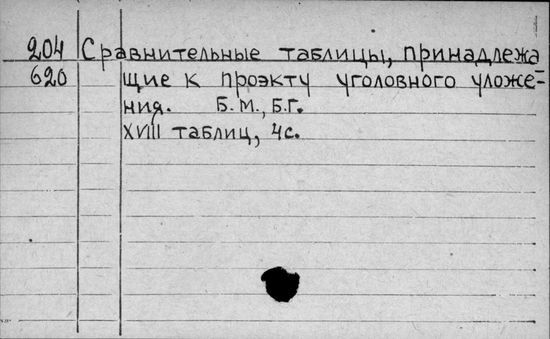 204 Сравнительные таблицы, принадлежа-
620 щие к проэкту уголовного уложе-
ния. Б.М., Б.Г.
XVIII таблиц, 4с.